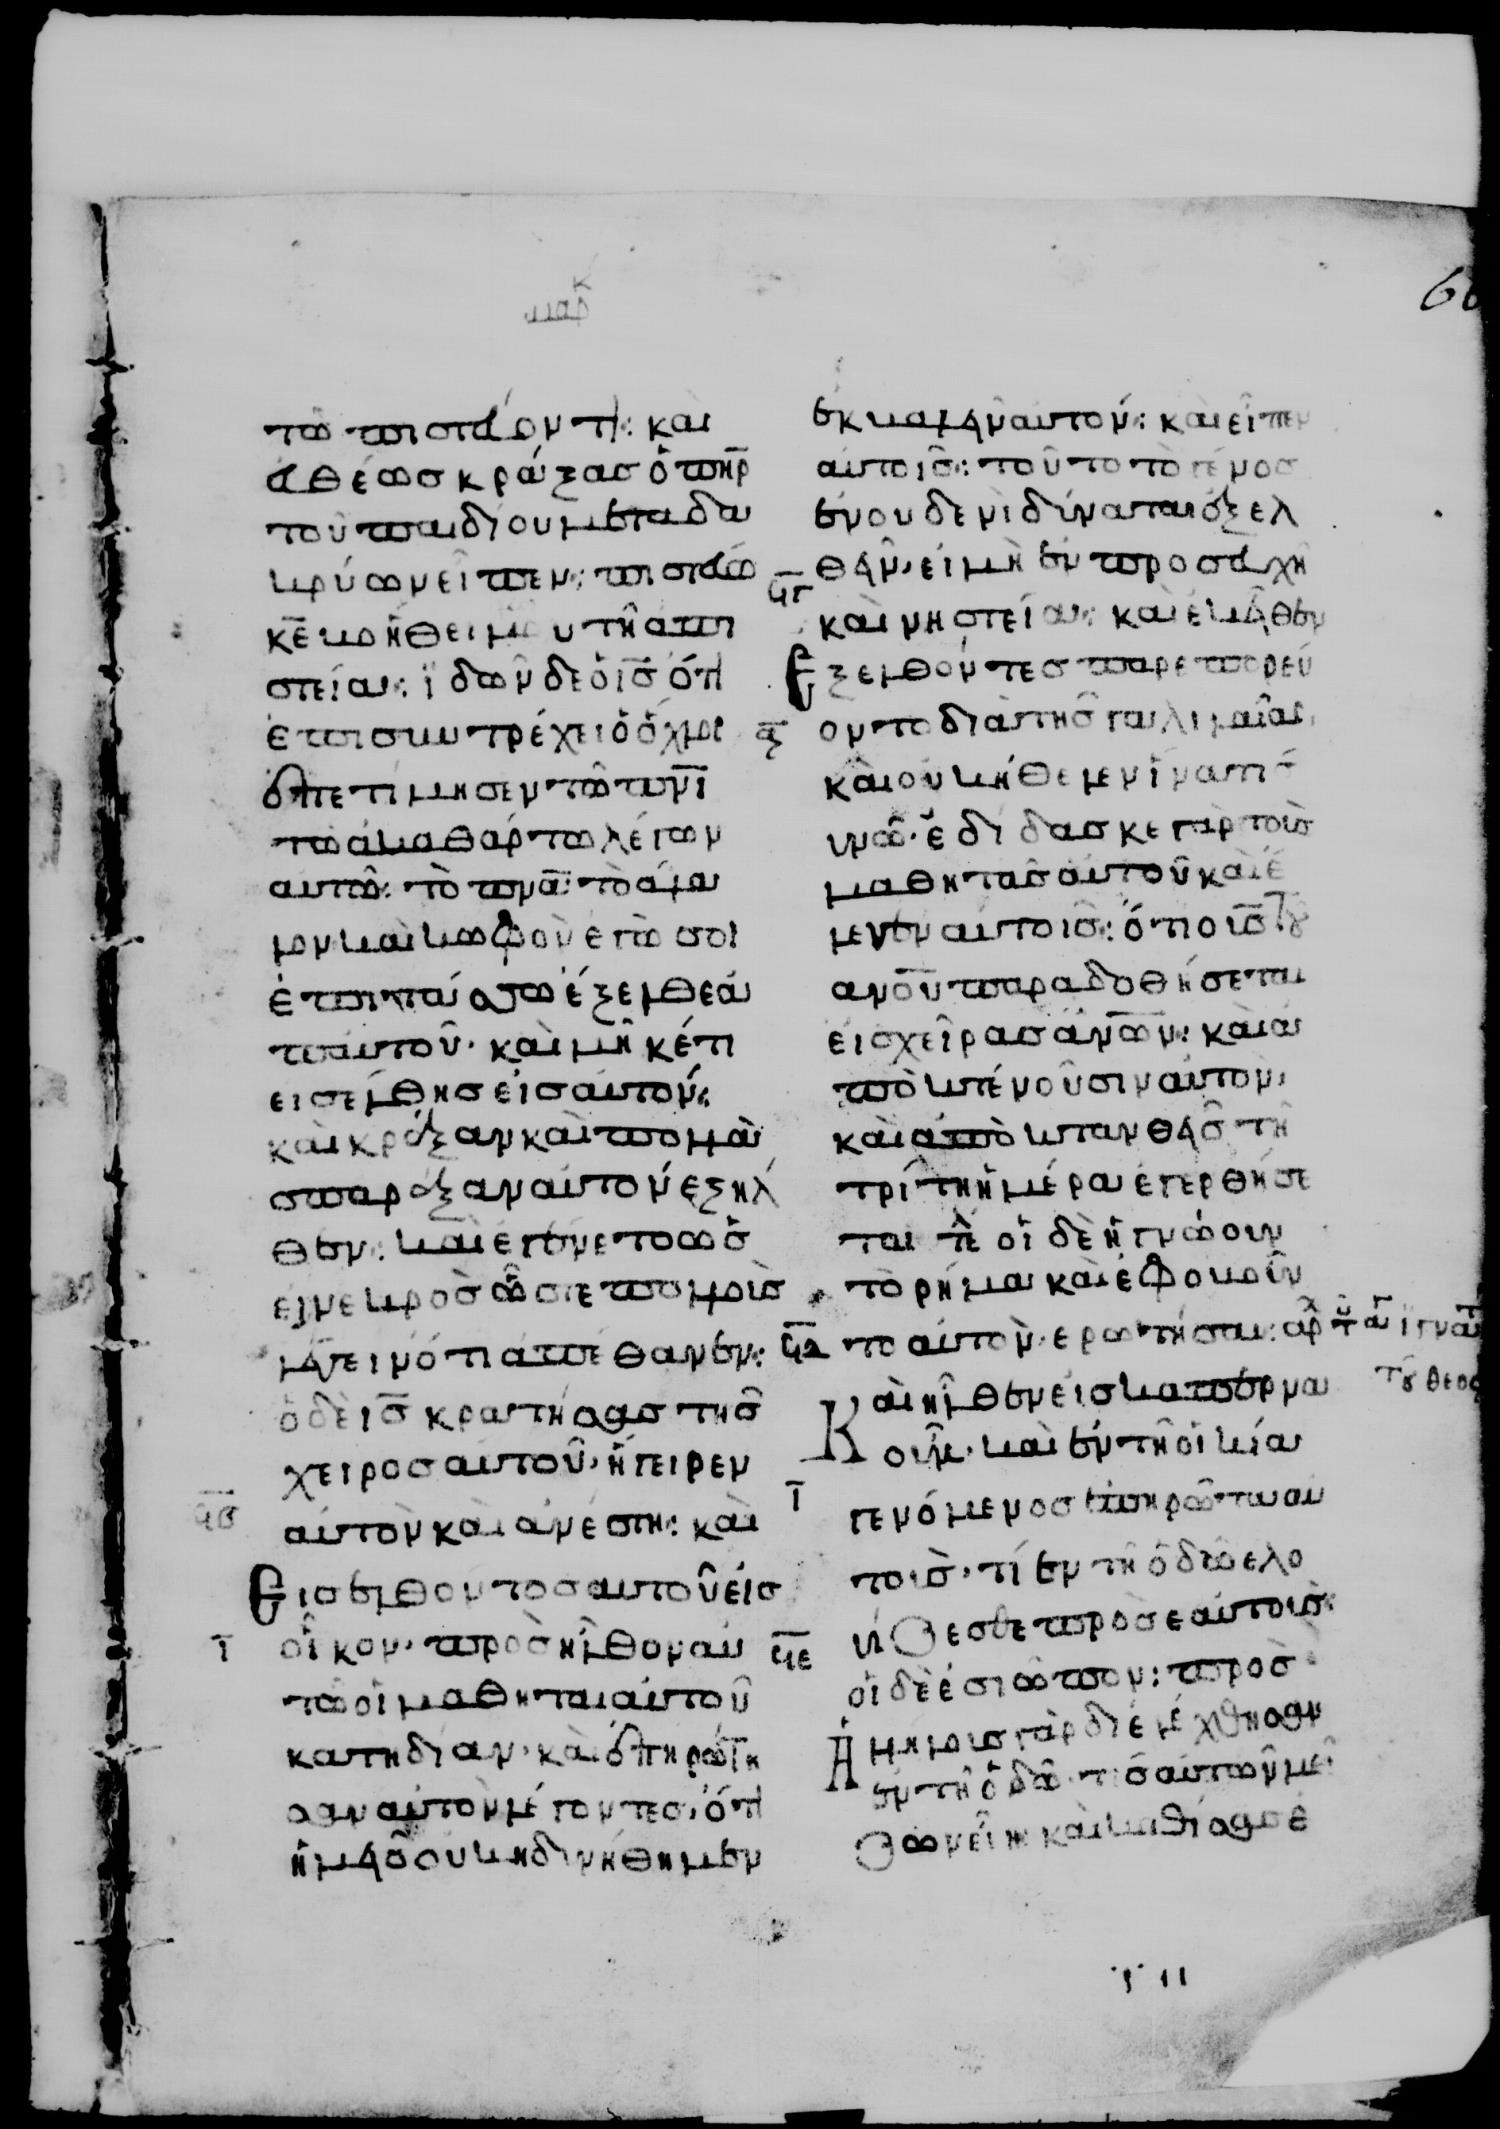 μαρκ
66
τῶ πιστεύοντι: και
ἐυθέωσ κράξασ ὁ πη̅ρ
τοῦ παιδίου μετα δα
κρύων εἶπεν: πιστεύω
κ̅ε βοήθει μου τῆ ἀπι
στεία: ϊδὼν δὲ ὁ ι̅σ ὅτι
ἐπισυντρέχει ὁ ὄχλος
ἐπετίμησεν τῶ πν̅ι
τῶ ἀκαθάρτω λέγων
αυτῶ: τὸ πν̅α τὸ ἄλα
λον καὶ κωφὸν ἐγὼ σοὶ
ἐπιτάσσω ἔξελθε ἀ
π αυτοῦ· καὶ μηκέτι
εισέλθησ εἰσ αυτόν:
καὶ κράξαν καὶ πολλὰ
σπαράξαν αυτὸν ἐξηλ
θεν: καὶ ἐγένετο ὡσ
εὶ νεκρὸσ ὥστε πολλοὺσ
λέγειν ὅτι ἀπέθανεν:
ὁ δὲ ι̅σ κρατήσασ τῆσ
χειροσ αυτοῦ· ἤγειρεν
αὐτὸν καὶ ἀνέστη: καὶ
Εισελθοντοσ αυτοῦ εἰσ
οἶκον· προσῆλθον αυ
τῶ οἱ μαθηται αὐτοῦ
κατηδίαν· καὶ ἐπηρώτη
σαν αὐτὸν λέγοντεσ· ὅτι
ἡμεῖσ οὐκ ηδυνήθημεν
ἐκβαλεῖν αυτό: καὶ εἶπεν
αυτοῖσ: τοῦτο τὸ γένοσ
ἐν ουδενὶ δύναται ἐξελ
θεῖν· εἰ μὴ ἐν προσευχῆ
και νηστεία: καὶ ἐκεῖθεν
Εξελθόντεσ παρεπορεύ
οντο διὰ τῆσ γαλιλαίας
καὶ οὐκ ἤθελεν ἵνα τισ
γνῶ· ἐδίδασκε γὰρ τοὺσ
μαθητασ αυτοῦ καὶ ἔ
λεγεν αυτοῖσ: ὅτι ο υ̅σ τοῦ
αν̅ου παραδοθήσεται
εἰσ χεῖρασ αν̅ων: καὶ α
ποκτενοῦσιν αυτον·
καὶ ἀποκτανθεὶσ τῆ
τρίτη ἡμέρα ἐγερθήσε
ται τε οἱ δὲ ἠγνόουν
τὸ ρῆμα καὶ ἐφοβοῦν
το αὐτὸν ερωτῆσαι: αρχ
Καὶ ἦλθεν εἰσ καπερνα
ούμ· καὶ ἐν τῆ οἰκία
γενόμενοσ ἐπηρώτα αυ
τοὺσ· τί ἐν τῆ ὁδῶ ελο
γίζεσθε προσ εαυτοὺσ·
οἱ δὲ ἐσιώπων: προσ
Αλλήλουσ γὰρ διελέχθησαν
ἐν τῆ ὁδῶ· τίσ αὐτῶν μεί
ζων εἴη καὶ καθίσασ ἐ